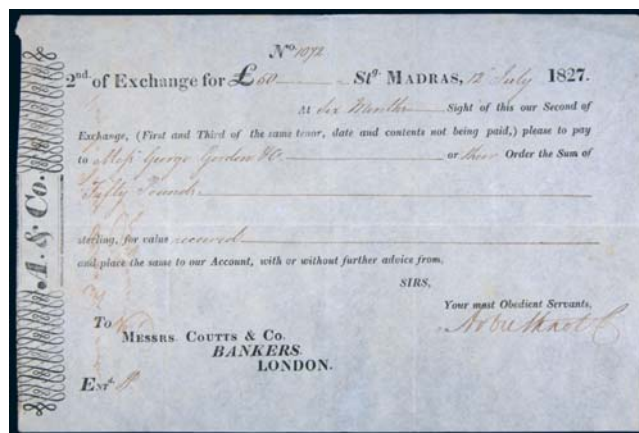 A. & Co.
No. 1072
2nd. of Exchange for £50 Stg. MADRAS, 12 July 1827.
At Six Months Sight of this our Second of
Exchange, (First and Third of the same tenor, date and contents not being paid,) please to pay
to Messrs George Gordon & Co. or their Order the Sum of
Fifty Pounds
sterling, for value received
and place the same to our Account, with or without further advice from,
SIRS,
Your most Obedient Servants,
Arbuthnot & Co
To
MESSRS. COUTTS & Co.
BANKERS.
LONDON.
ENTd.